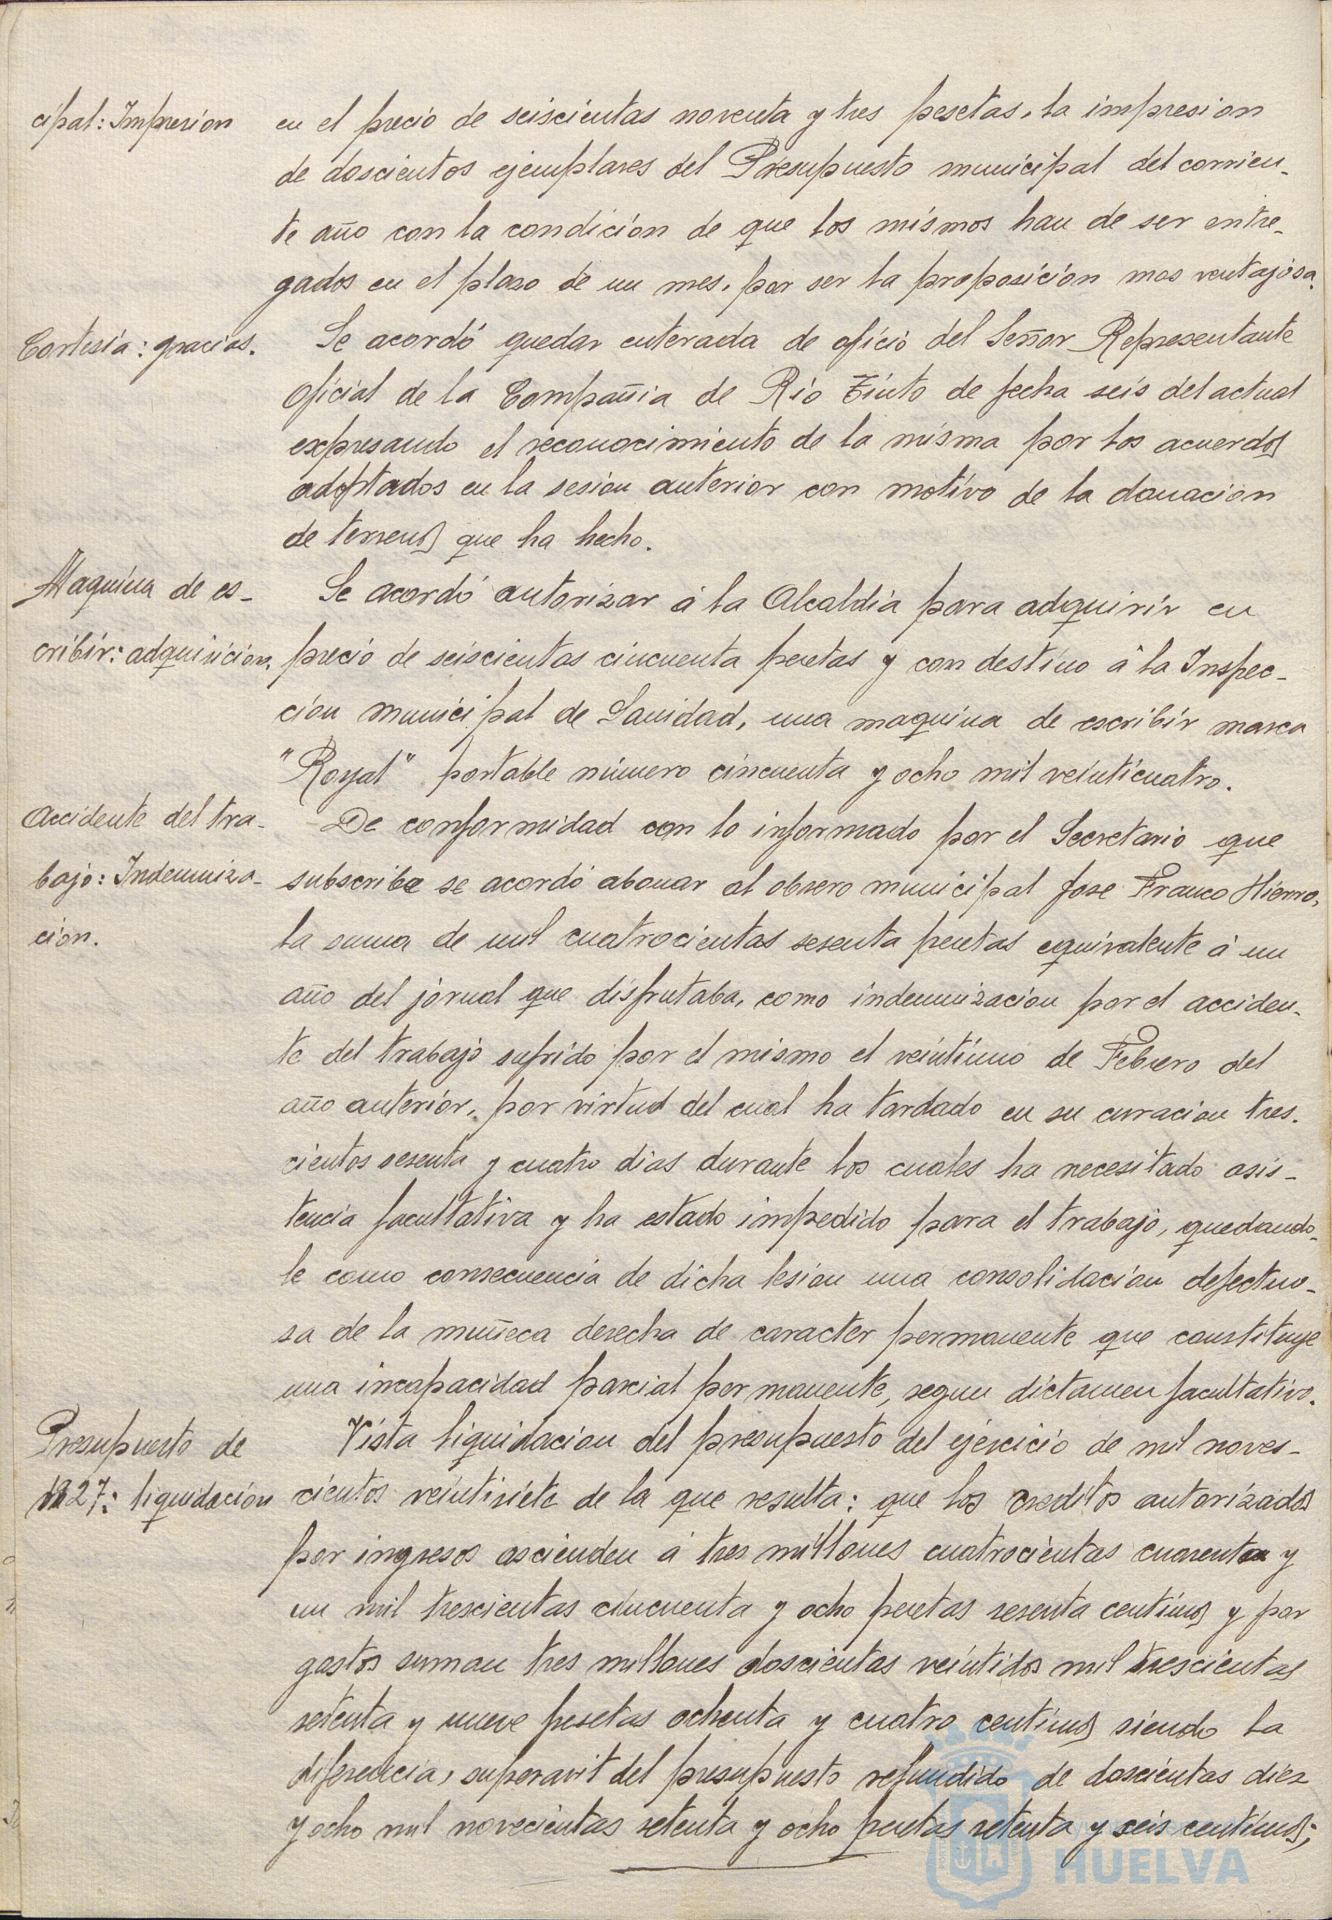 cipal: Impresion
en el precio de seiscientas noventa y tres pesetas, la impresion
de doscientos ejemplares del Presupuesto municipal del corrien-
te año con la condición de que los mismos han de ser entre-
gados en el plazo de un mes, por ser la proposición mas ventajosa.
Cortesia: gracias.
Se acordó quedar enterada de oficio del Señor Representante
Oficial de la Compañia de Rio Tinto de fecha seis del actual
expresando el reconocimiento de la misma por los acuerdos
adoptados en la sesion anterior con motivo de la donacion
de terrenos que ha hecho.
Maquina de es-
cribir: adquisicion.
Se acordó autorizar á la Alcaldia para adquirir en
precio de seiscientas cincuenta pesetas y con destino á la Inspec-
ción municipal de Sanidad, una maquina de escribir marca
"Royal" portable número cincuenta y ocho mil veinticuatro.
Accidente del tra-
bajo: Indemniza-
cion.
De conformidad con lo informado por el Secretario que
subscribe se acordó abonar al obrero municipal Jose Franco Hierro,
la suma de mil cuatrocientas sesenta pesetas equivalente á un
año del jornal que disfrutaba, como indemnizacion por el acciden-
te del trabajo sufrido por el mismo el veintiuno de Febrero del
año anterior, por virtud del cual ha tardado en su curacion tres-
cientos sesenta y cuatro dias durante los cuales ha necesitado asis-
tencia facultativa y ha estado impedido para el trabajo, quedando-
le como consecuencia de dicha lesion una consolidacion defectuo-
sa de la muñeca derecha de caracter permanente que constituye
una incapacidad parcial permanente, segun dictamen facultativo.
Presupuesto de
1927: liquidación
Vista liquidacion del presupuesto del ejercicio de mil noves-
cientos veintisiete de la que resulta: que los creditos autorizados
por ingresos ascienden á tres millones cuatrocientas cuarenta y
un mil trescientas cincuenta y ocho pesetas sesenta centimos y por
gastos suman tres millones doscientas veintidos mil trescientas
setenta y nueve pesetas ochenta y cuatro centimos siendo la
diferencia, superavit del presupuesto refundido de doscientas diez
y ocho mil novecientas setenta y ocho pesetas setenta y seis centimos;
HUELVA